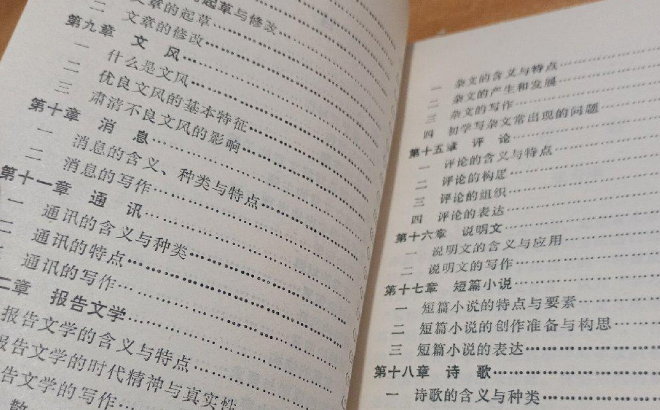 的起草与修改
二 文章的起草
二 文章的修改
第九章 文风
一 什么是文风
二 优良文风的基本特征
三 肃清不良文风的影响
第十章 消息
一 消息的含义、种类与特点
二 消息的写作
第十一章 通讯
一 通讯的含义与种类
二 通讯的特点
三 通讯的写作
二章 报告文学
报告文学的含义与特点
报告文学的时代精神与真实性
告文学的写作
一 杂文的含义与特点
二 杂文的产生和发展
三 杂文的写作
四 初学写杂文常出现的问题
第十五章 评论
一 评论的含义与特点
二 评论的构思
三 评论的组织
四 评论的表达
第十六章 说明文
一 说明文的含义与应用
二 说明文的写作
第十七章 短篇小说
一 短篇小说的特点与要素
二 短篇小说的创作准备与构思
三 短篇小说的表达
第十八章 诗歌
一 诗歌的含义与种类